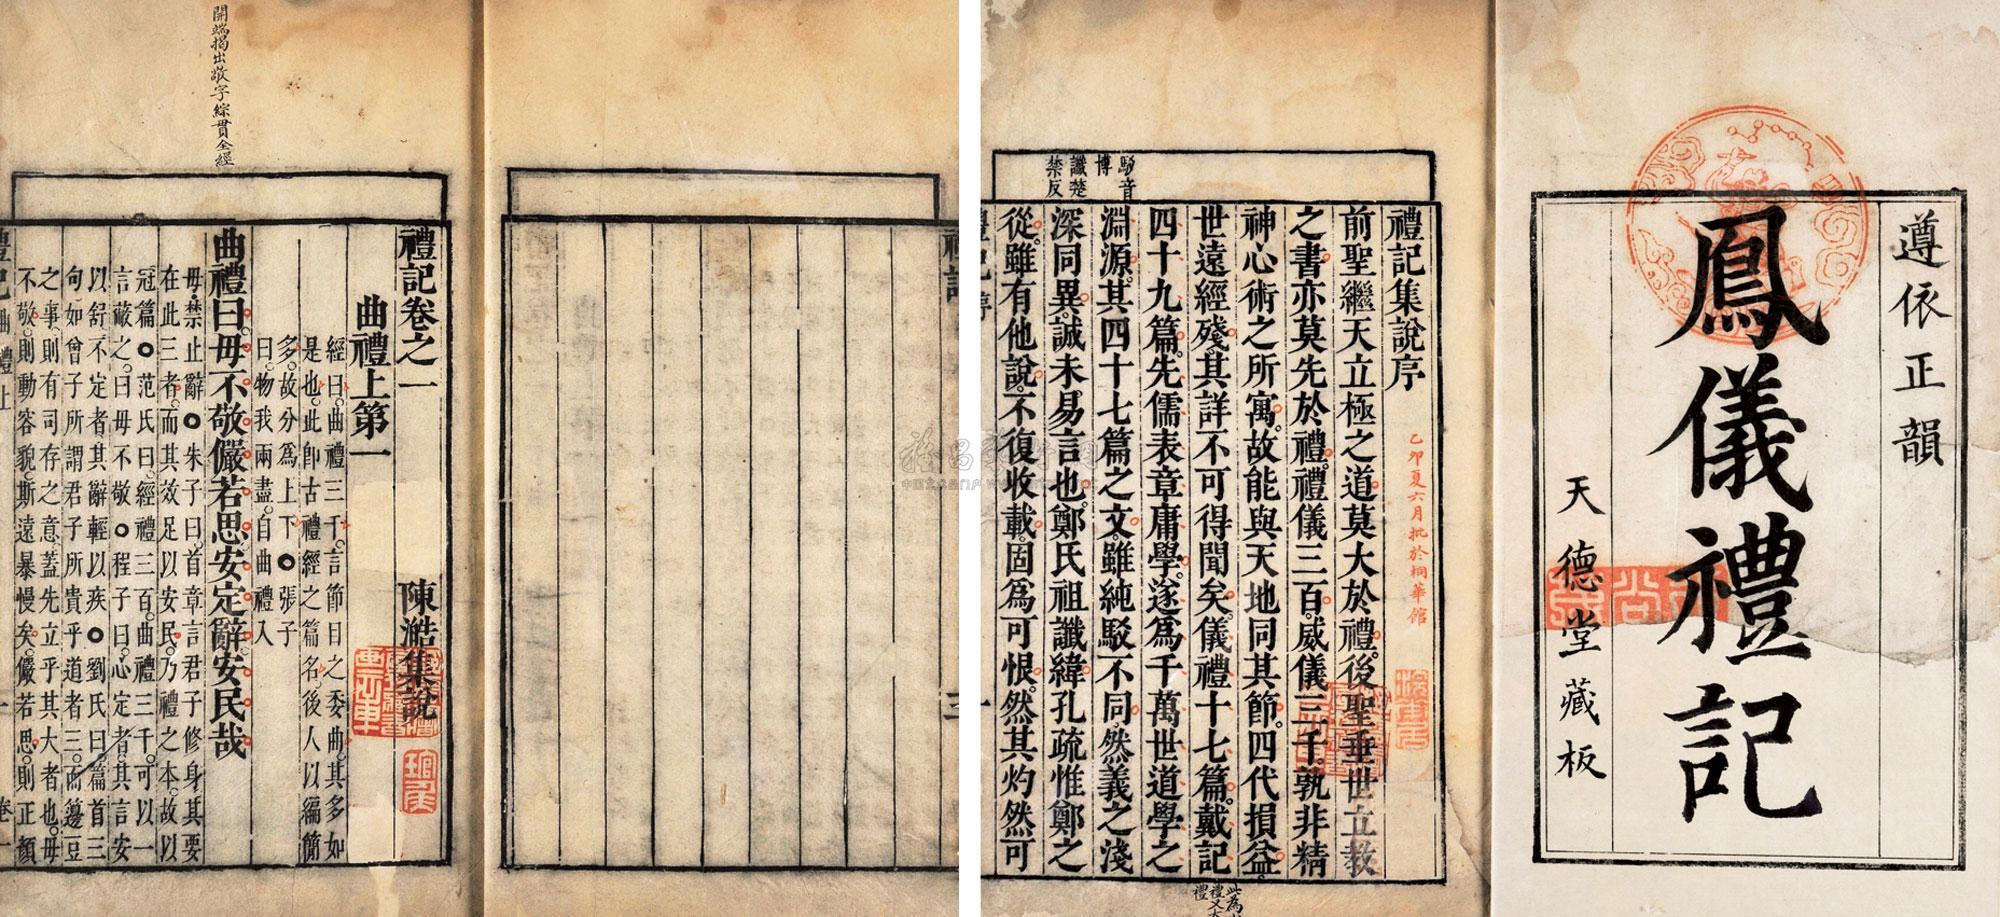 遵依正韻
鳳儀禮記
天德堂藏板
駁音
博
讖楚
禁反
禮記集說序
乙卯夏六月批於桐華館
前聖繼天立極之道莫大於禮後聖垂世立教
之書亦莫先於禮禮儀三百威儀三千孰非精
神心術之所寓故能與天地同其節四代損益
世遠經殘其詳不可得聞矣儀禮十七篇戴記
四十九篇先儒表章庸學遂為千萬世道學之
淵源其四十七篇之文雖純駁不同然義之淺
深同異誠未易言也鄭氏祖讖緯孔疏惟鄭之
從雖有他說不復收載固為可恨然其灼然可
開端揭出敬字綜貫全經
禮記卷之一
陳澔集說
曲禮上第一
經曰曲禮三千言節目之委曲其多如
是也此即古禮經之篇名後人以編簡
多故分為上下○張子
曰物我兩盡自曲禮入
曲禮曰毋不敬儼若思安定辭安民哉
毋禁止辭○朱子曰首章言君子修身其要
在此三者而其效足以安民乃禮之本故以
冠篇○范氏曰經禮三百曲禮三千可以一
言蔽之曰毋不敬○程子曰心定者其言安
以舒不定者其辭輕以疾○劉氏曰篇首三
句如曾子所謂君子所貴乎道者三而籩豆
之事則有司存之意蓋先立乎其大者也毋
不敬則動容貌斯遠暴慢矣儼若思則正顏